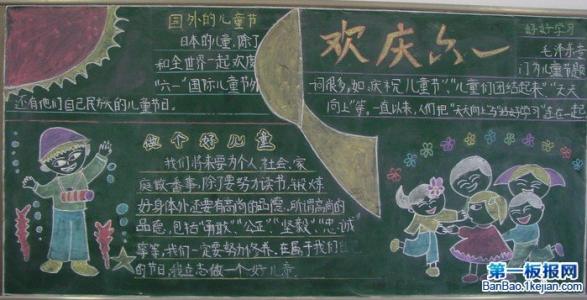 国外的儿童节
日本的儿童,除了
和全世界一起欢度
"六一"国际儿童节外
还有他们自己民族的儿童节日。
欢庆六一
好好学习
毛泽东
门为儿童节题
词很多,如"庆祝儿童节""儿童们团结起来""天天
向上"等。一直以来,人们把"天天向上"与"好好学习"连在一起
做个好儿童
我们将来要为个人,社会,家
庭做番事,除了要努力读书,锻炼
好身体外还要有高尚的品德,所谓高尚的
品德,包括"勇敢""公正""坚毅""忠诚
等等,我们一定要努力修养。在属于我们自
的节日,我立志做一个好儿童
第一板报网
BanBao.1kejian.com